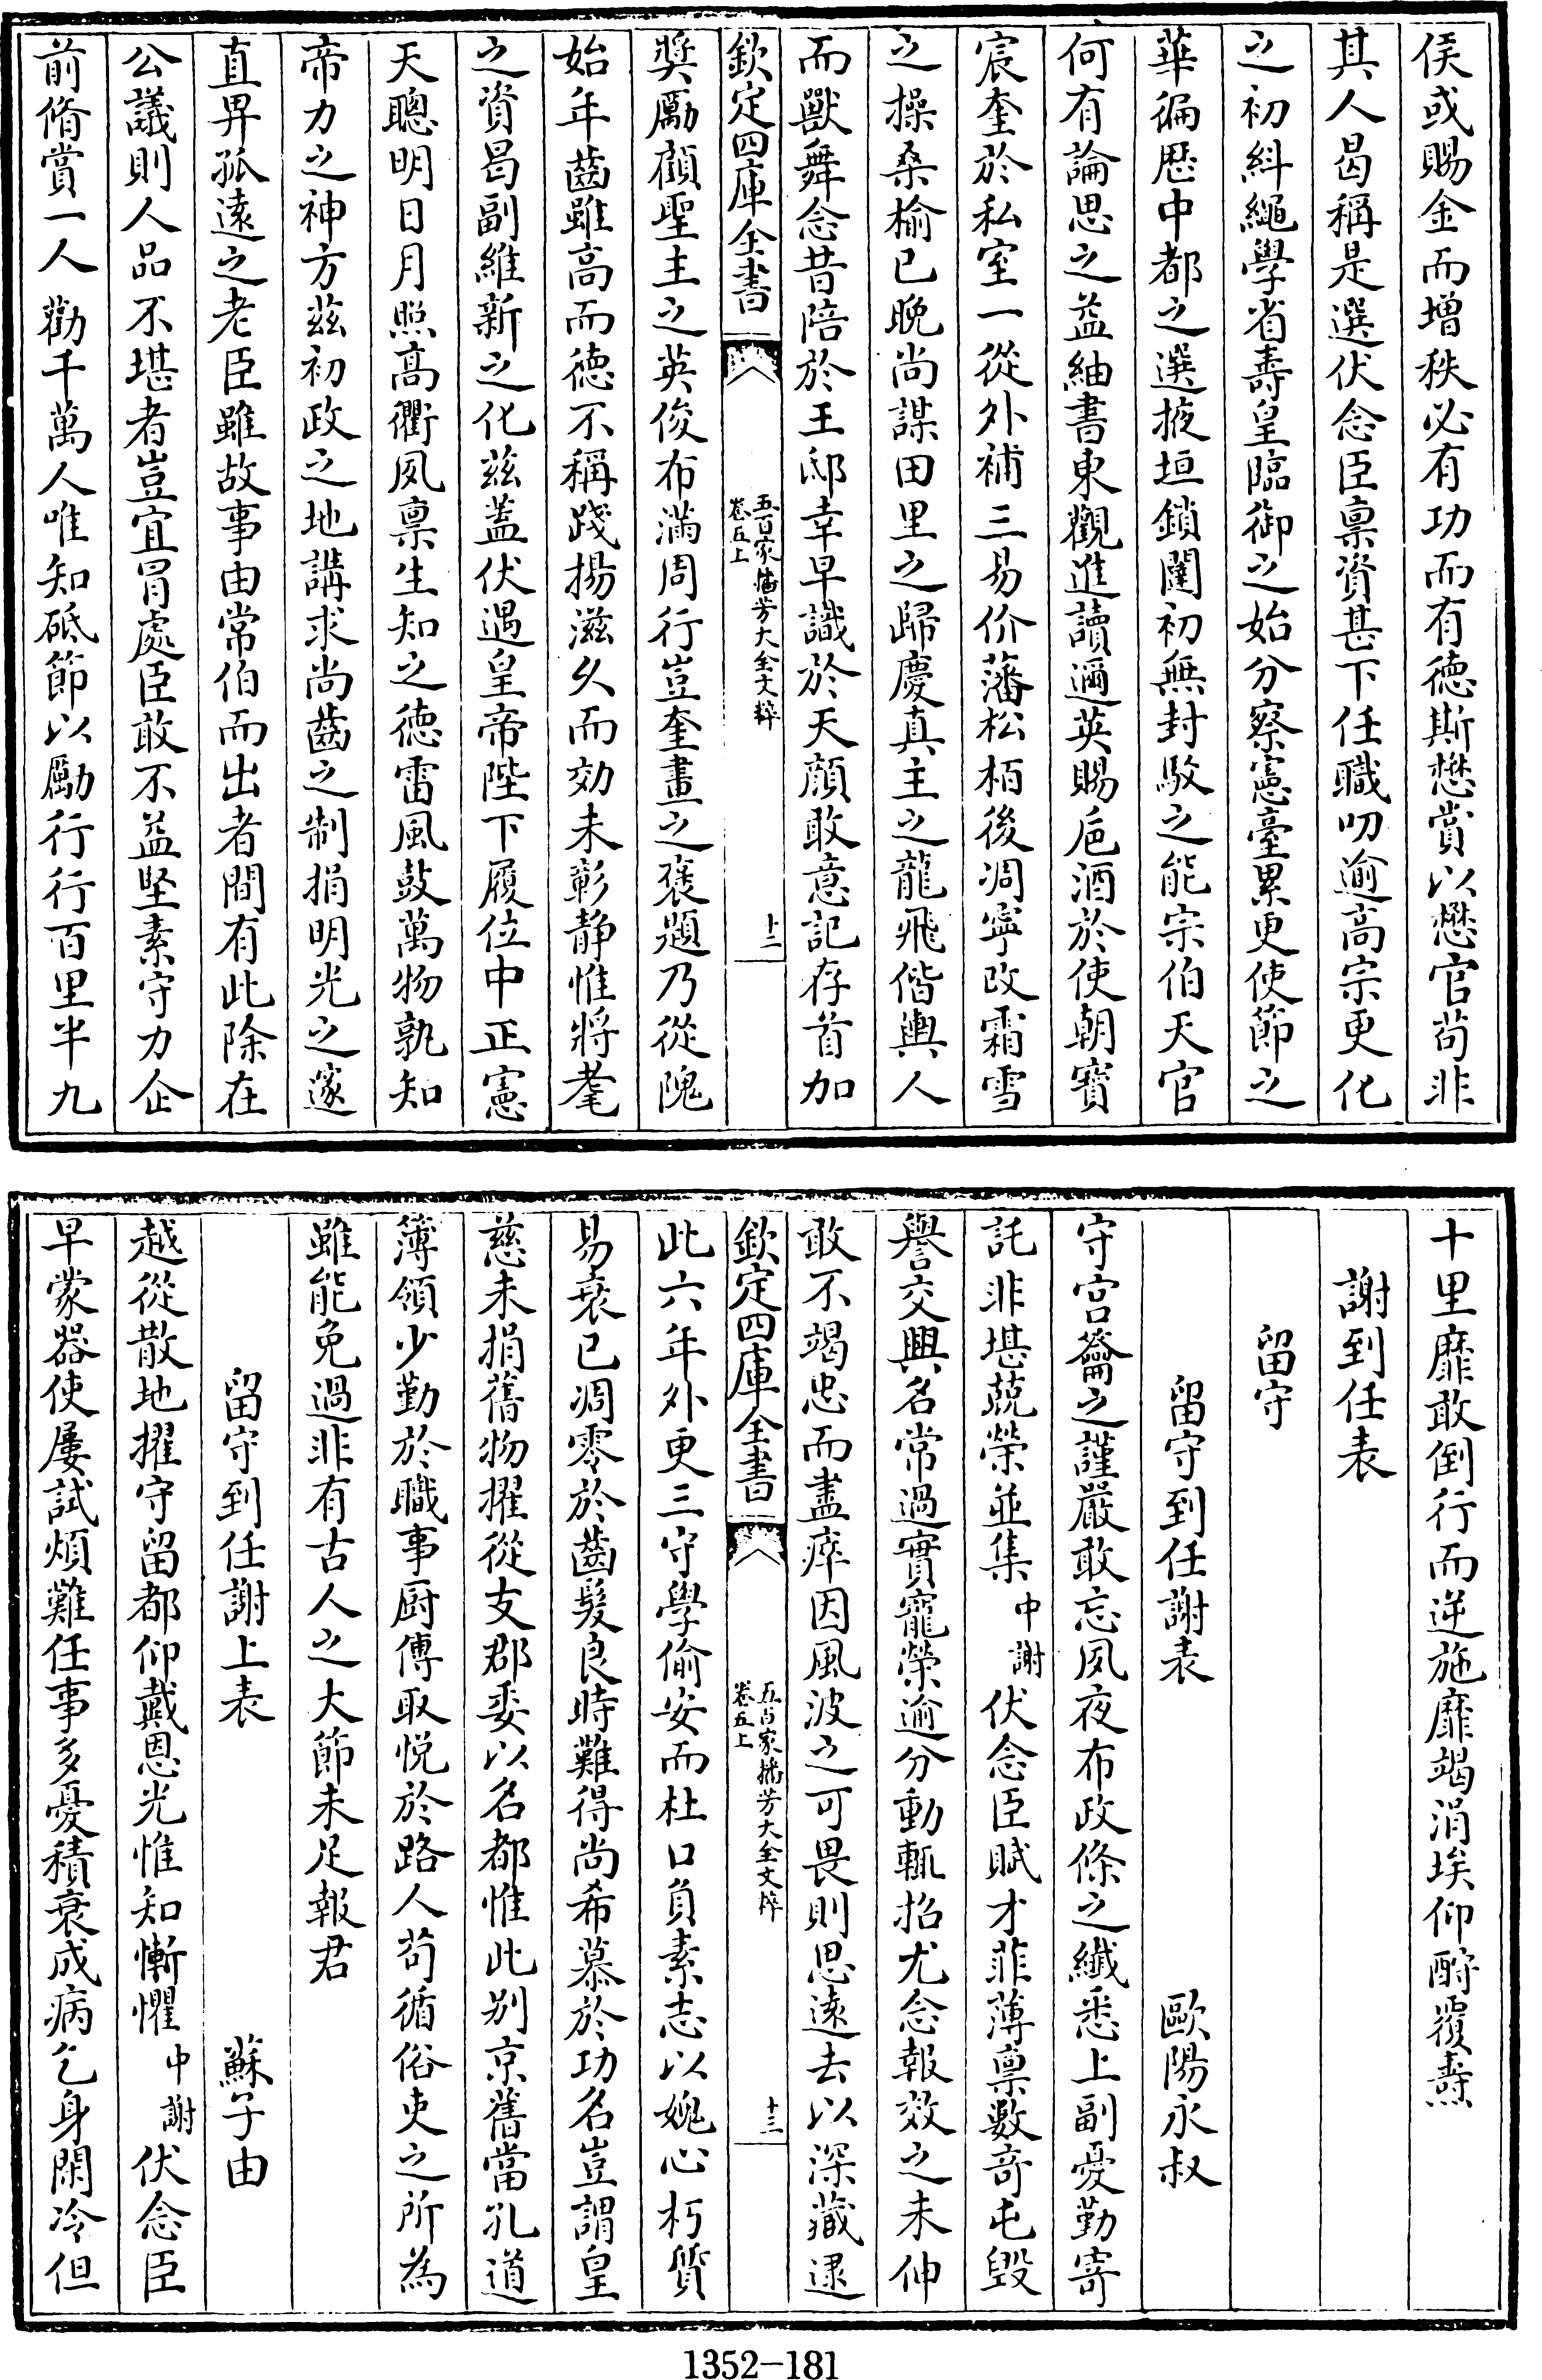 侯或賜金而增秩必有功而有德斯懋賞以懋官茍非
其人曷稱是選伏念臣稟資甚下任職叨逾高宗更化
之初糾繩學省壽皇臨御之始分察憲臺累更使節之
華徧歴中都之選掖垣鎖闥初無封駮之能宗伯天官
何有論思之益紬書東觀進讀邇英賜巵酒於使朝寳
宸奎於私室一從外補三易价藩松栢後凋寧改霜雪
之操桑榆已晚尚謀田里之歸慶真主之龍飛偕輿人
而獸舞念昔陪於王邸幸早識於天顔敢意記存首加
欽定四庫全書
五百家播芳大全文粹
卷五上
十二
奬勵顧聖主之英俊布滿周行豈奎畫之褒題乃從隗
始年齒雖高而德不稱踐揚滋久而効未彰静惟將耄
之資曷副維新之化兹蓋伏遇皇帝陛下履位中正憲
天聰明日月照高衢夙禀生知之德雷風鼓萬物孰知
帝力之神方兹初政之地講求尚齒之制捐明光之邃
直畀孤遠之老臣雖故事由常伯而出者間有此除在
公議則人品不堪者豈宜冐處臣敢不益堅素守力企
前脩賞一人勸千萬人唯知砥節以勵行行百里半九
十里靡敢倒行而逆施靡竭涓埃仰酧覆燾
謝到任表
留守
留守到任謝表 歐陽永叔
守宫籥之謹嚴敢忘夙夜布政條之纖悉上副憂勤寄
託非堪兢榮並集中謝伏念臣賦才菲薄禀數竒屯毁
譽交興名常過實寵榮逾分動輒招尤念報效之未伸
敢不竭忠而盡瘁因風波之可畏則思遠去以深藏逮
欽定四庫全書
五百家播芳大全文粹
卷五上
十三
此六年外更三守學偷安而杜口負素志以媿心朽質
易衰已凋零於齒髮良時難得尚希慕於功名豈謂皇
慈未捐舊物擢從支郡委以名都惟此别京舊當孔道
簿領少勤於職事厨傳取悦於路人茍循俗吏之所為
雖能免過非有古人之大節未足報君
留守到任謝上表 蘇子由
越從散地擢守留都仰戴恩光惟知慚懼中謝伏念臣
早蒙器使屢試煩難任事多憂積衰成病乞身閑冷但
1352-181